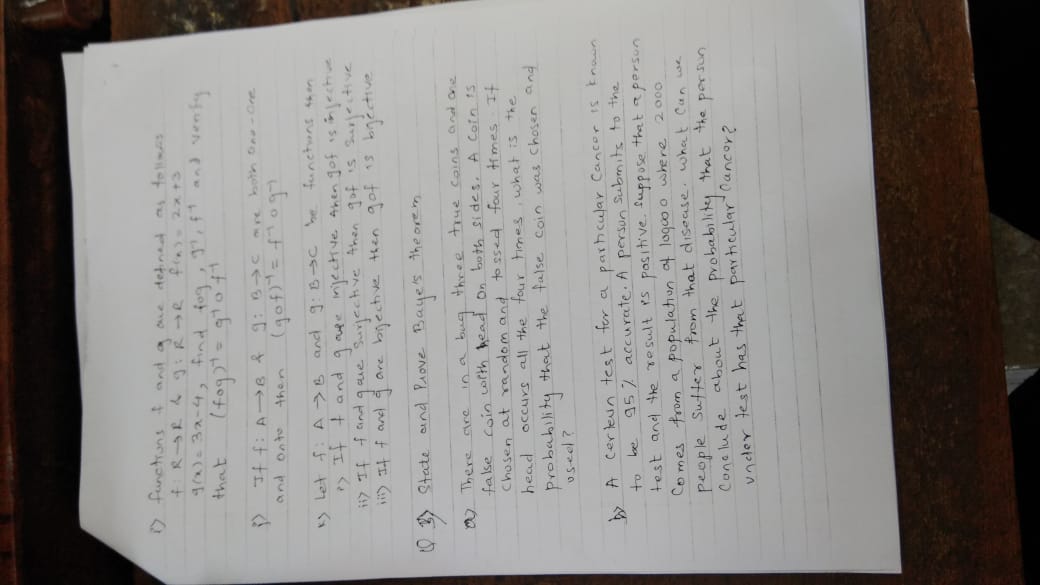 i) functions f and g are defined as follows
f: R→R & g: R→R f(x)= 2x+3
g(x)= 3x-4, find fog, g⁻¹, f⁻¹ and verify
that (fog)⁻¹ = g⁻¹o f⁻¹
j) If f: A→B & g: B→C are both one-one
and onto then (gof)⁻¹ = f⁻¹ og⁻¹
k) Let f: A→B and g: B→C be functions then
i) If f and g are injective then gof is injective
ii) If f and g are surjective then gof is surjective
iii) If f and g are bijective then gof is bijective
Q 3) State and Prove Baye's theorem
a) There are in a bag three true coins and one
false coin with head on both sides. A coin is
chosen at random and tossed four times. If
head occurs all the four times, what is the
probability that the false coin was chosen and
used?
b) A certain test for a particular Cancer is known
to be 95% accurate. A person submits to the
test and the result is positive. Suppose that a person
comes from a population of 100000 where 2000
people suffer from that disease. What can we
conclude about the probability that the person
under test has that particular Cancer?